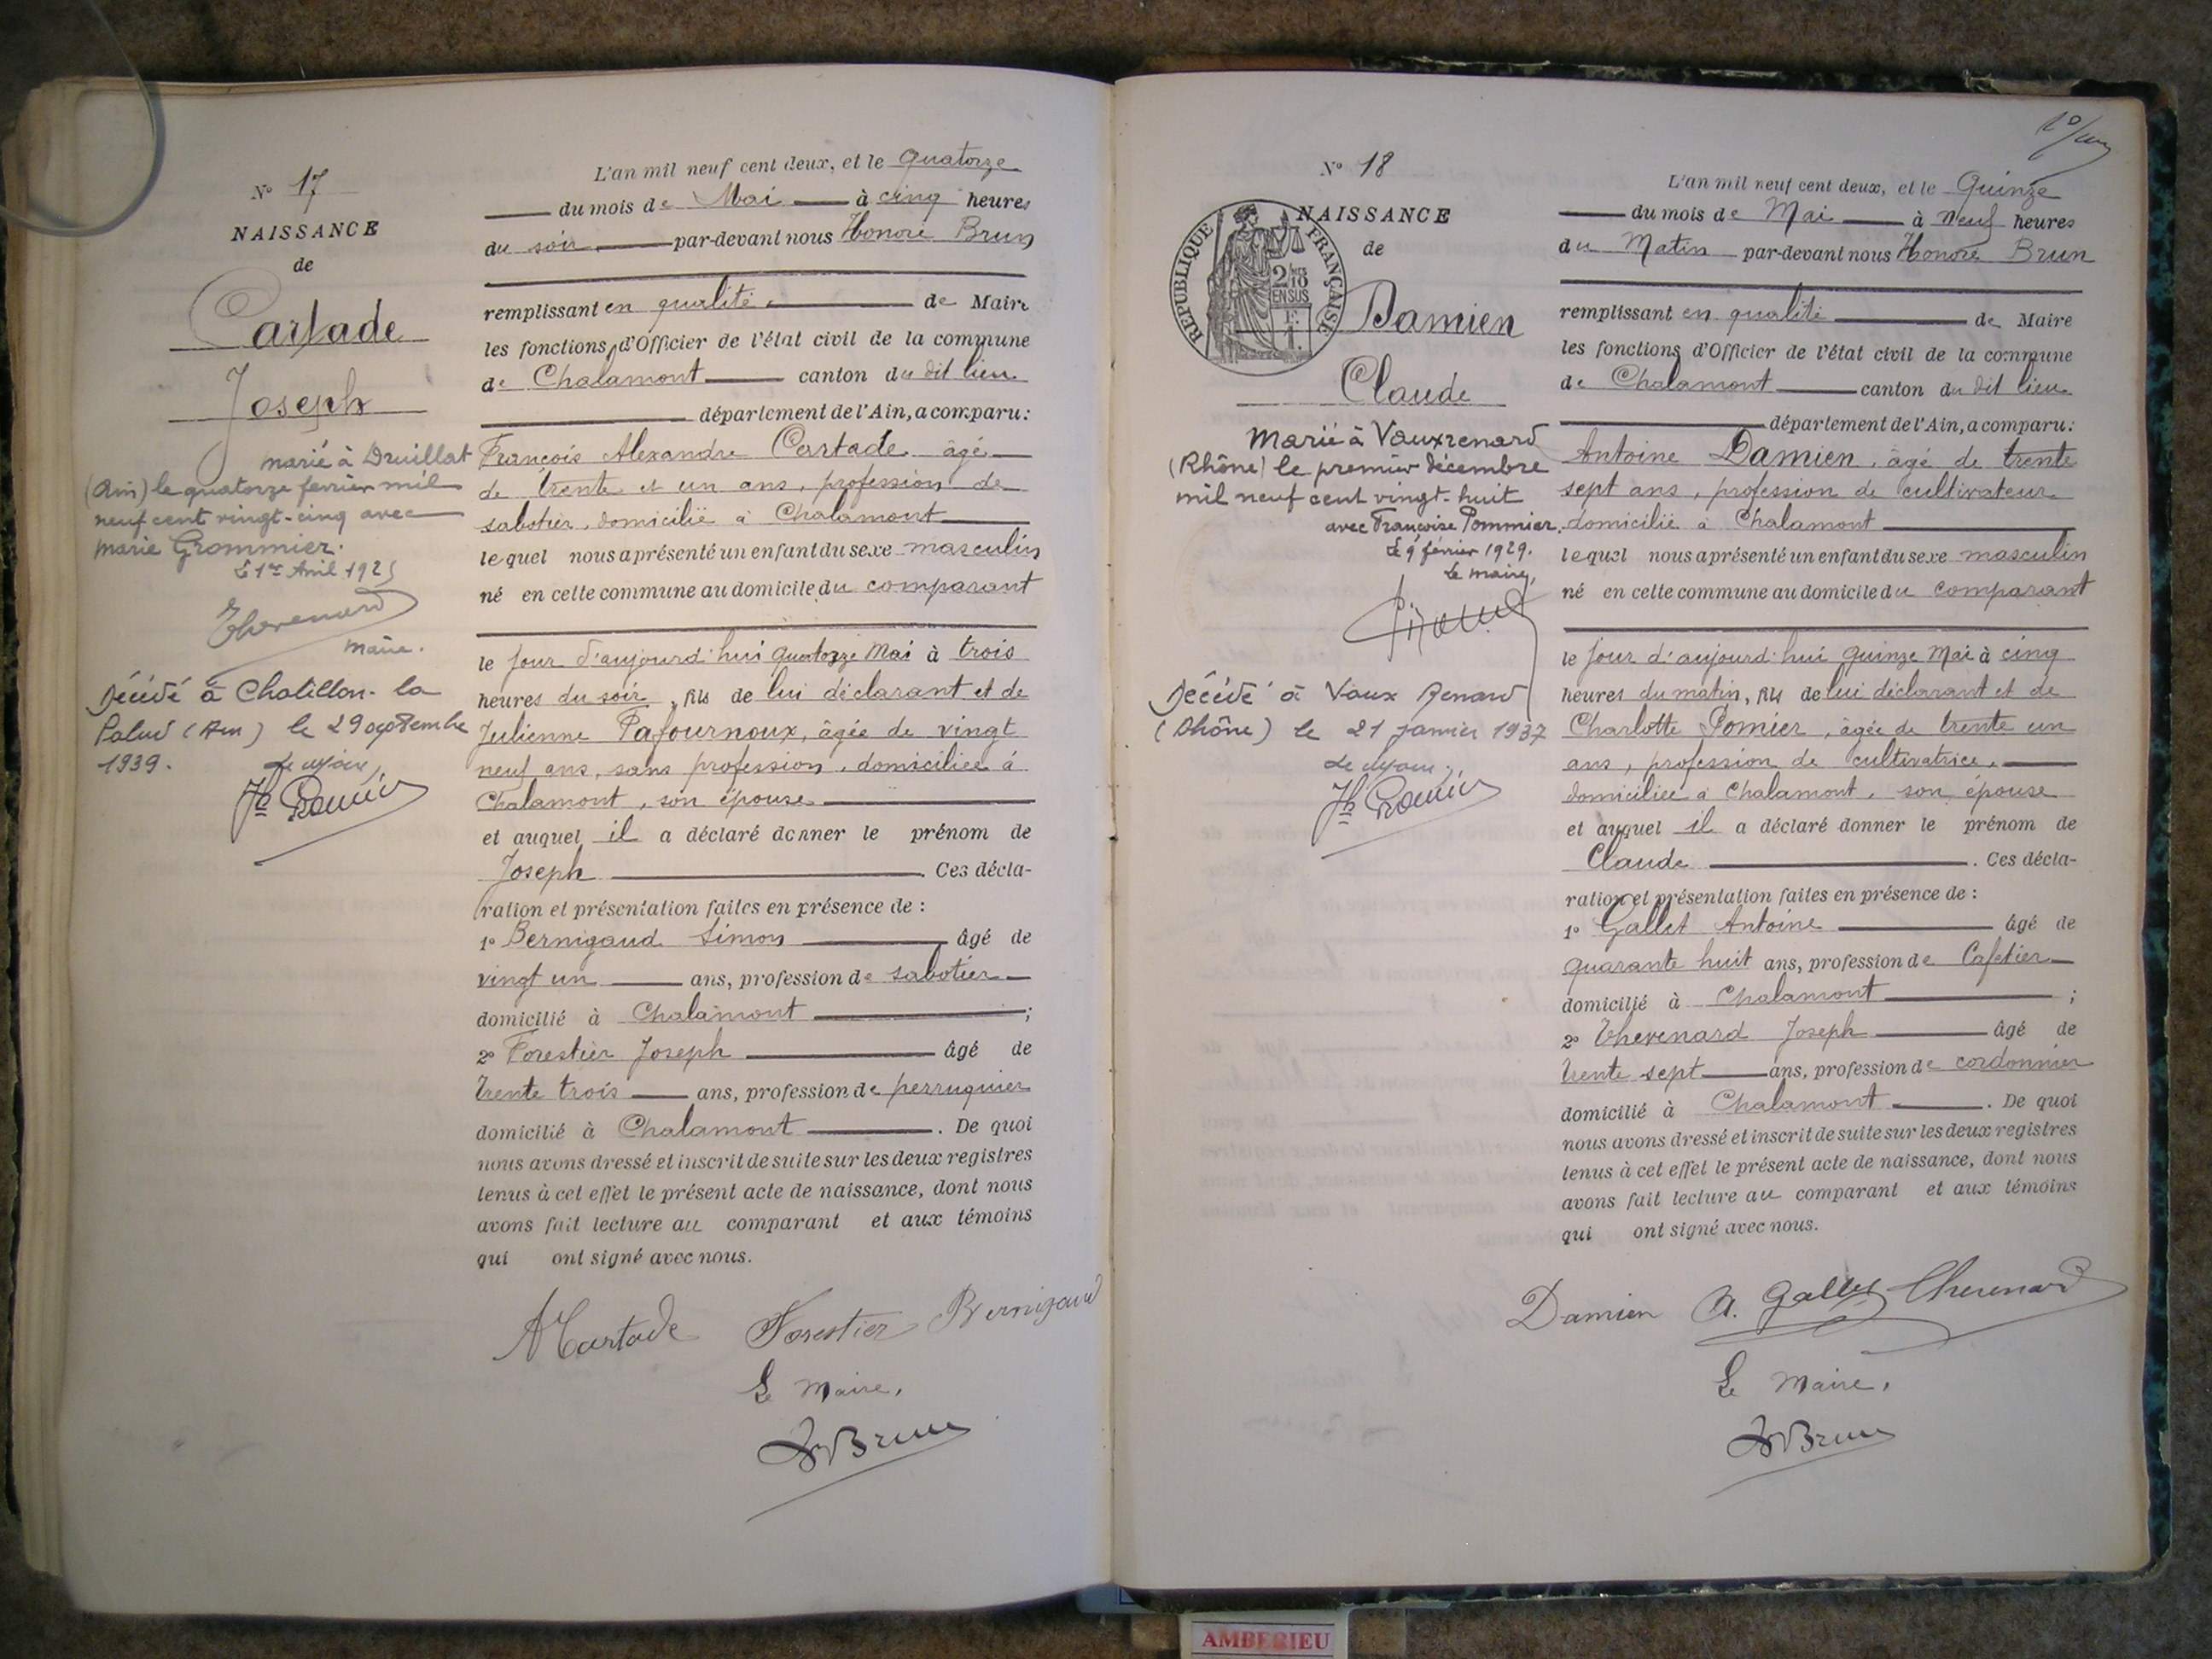 N° 17
NAISSANCE
de
Cartade
Joseph
marié à Druillat
(Ain) le quatorze février mil
neuf cent vingt-cinq avec
Marie Grommier.
Le 1er Avril 1925
Thevenard
Maire.
Décédé à Chatillon-la
Palud (Ain) le 29 septembre
1939.
Le Maire,
L'an mil neuf cent deux, et le Quatorze
du mois de Mai à cinq heures
du soir par-devant nous Honoré Brun
remplissant en qualité de Maire
les fonctions d'Officier de l'état civil de la commune
de Chalamont canton du dit lieu
département de l'Ain, a comparu:
François Alexandre Cartade âgé
de trente et un ans, profession de
sabotier, domicilié à Chalamont
lequel nous a présenté un enfant du sexe masculin
né en cette commune au domicile du comparant
le jour d'aujourd'hui quatorze Mai à trois
heures du soir, fils de lui déclarant et de
Julienne Pafournoux, âgée de vingt
neuf ans, sans profession, domiciliée à
Chalamont, son épouse
et auquel il a déclaré donner le prénom de
Joseph . Ces décla-
ration et présentation faites en présence de :
1° Bernigaud Simon âgé de
vingt un ans, profession de sabotier
domicilié à Chalamont ;
2° Forestier Joseph âgé de
trente trois ans, profession de perruquier
domicilié à Chalamont . De quoi
nous avons dressé et inscrit de suite sur les deux registres
tenus à cet effet le présent acte de naissance, dont nous
avons fait lecture au comparant et aux témoins
qui ont signé avec nous.
A Cartade Forestier Bernigaud
Le Maire,
H Brun
N° 18
NAISSANCE
de
REPUBLIQUE FRANÇAISE
2/10
EN SUS
Damien
Claude
Marié à Vauxrenard
(Rhône) le premier décembre
mil neuf cent vingt-huit
avec Françoise Pommier.
Le 9 février 1929.
Le Maire,
Décédé à Vaux Renard
(Rhône) le 21 janvier 1937
Le Maire,
L'an mil neuf cent deux, et le Quinze
du mois de Mai à neuf heures
du Matin par-devant nous Honoré Brun
remplissant en qualité de Maire
les fonctions d'Officier de l'état civil de la commune
de Chalamont canton du dit lieu
département de l'Ain, a comparu:
Antoine Damien, âgé de trente
sept ans, profession de cultivateur
domicilié à Chalamont
lequel nous a présenté un enfant du sexe masculin
né en cette commune au domicile du comparant
le jour d'aujourd'hui quinze Mai à cinq
heures du matin, fils de lui déclarant et de
Charlotte Pomier, âgée de trente un
ans, profession de cultivatrice,
domiciliée à Chalamont, son épouse
et auquel il a déclaré donner le prénom de
Claude . Ces décla-
ration et présentation faites en présence de :
1° Gallet Antoine âgé de
quarante huit ans, profession de Cafetier
domicilié à Chalamont ;
2° Thevenard Joseph âgé de
trente sept ans, profession de cordonnier
domicilié à Chalamont . De quoi
nous avons dressé et inscrit de suite sur les deux registres
tenus à cet effet le présent acte de naissance, dont nous
avons fait lecture au comparant et aux témoins
qui ont signé avec nous.
Damien A. Gallet Thevenard
Le Maire,
H Brun
AMBERIEU